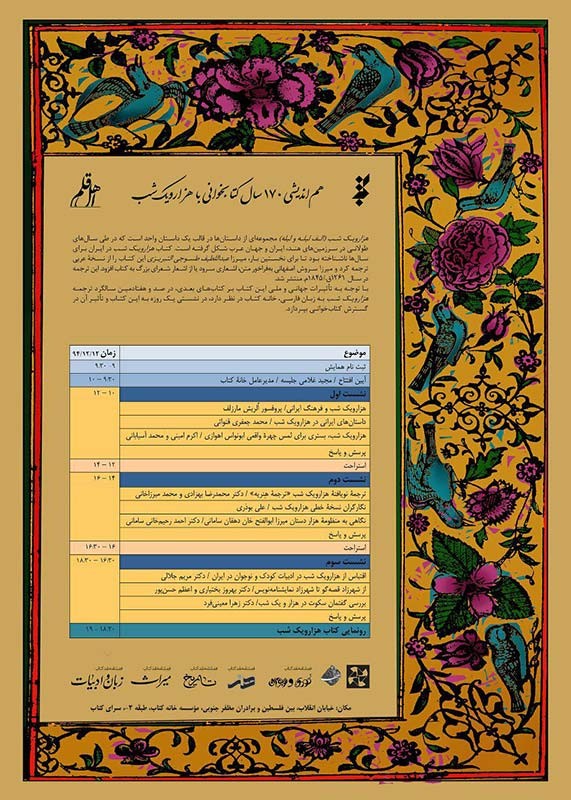 هم اندیشی ۱۷۰ سال کتابخوانی با هزارویک شب
اهل قلم
هزارویک شب (الف لیله و لیله) مجموعه‌ای از داستان‌ها در قالب یک داستان واحد است که در طی سال‌های
طولانی در سرزمین‌های هند، ایران و جهان عرب شکل گرفته است. کتاب هزارویک شب در ایران برای
سال‌ها ناشناخته بود تا برای نخستین بار، میرزا عبداللطیف طسوجی التبریزی این کتاب را از نسخهٔ عربی
ترجمه کرد و میرزا سروش اصفهانی به‌فراخور متن، اشعاری سرود یا از اشعار شعرای بزرگ به کتاب افزود. این ترجمه
در سال ۱۲۶۱ق/۱۸۴۵م. منتشر شد.
با توجه به تأثیرات جهانی و ملی این کتاب بر کتاب‌های بعدی، در صد و هفتادمین سالگرد ترجمه
هزارویک شب به زبان فارسی، خانه کتاب در نظر دارد، در نشستی یک روزه به این کتاب و تأثیر آن در
گسترش کتاب‌خوانی بپردازد.
موضوع زمان ۹۴/۱۲/۱۲
ثبت نام همایش ۹ – ۹:۳۰
آیین افتتاح / مجید غلامی جلیسه / مدیرعامل خانهٔ کتاب ۹:۳۰ – ۱۰
نشست اول ۱۰ – ۱۲
هزارویک شب و فرهنگ ایرانی/ پروفسور اُلریش مارزلف
داستان‌های ایرانی در هزارویک شب / محمد جعفری قنواتی
هزارویک شب، بستری برای لمس چهرهٔ واقعی ابونواس اهوازی / اکرم امینی و محمد آسیابانی
پرسش و پاسخ
استراحت ۱۲ – ۱۴
نشست دوم ۱۴ – ۱۶
ترجمهٔ نویافتهٔ هزارویک شب «ترجمهٔ هنریه» / دکتر محمدرضا بهزادی و محمد میرزاخانی
نگارگران نسخهٔ خطی هزارویک شب / علی بوذری
نگاهی به منظومهٔ هزار دستان میرزا ابوالفتح خان دهقان سامانی / دکتر احمد رحیم‌خانی سامانی
پرسش و پاسخ
استراحت ۱۶ – ۱۶:۳۰
نشست سوم ۱۶:۳۰ – ۱۸:۳۰
اقتباس از هزارویک شب در ادبیات کودک و نوجوان در ایران / دکتر مریم جلالی
از شهرزاد قصه‌گو تا شهرزاد نمایشنامه‌نویس/ دکتر بهروز بختیاری و اعظم حسن‌پور
بررسی گفتمان سکوت در هزار و یک شب/ دکتر زهرا معینی‌فرد
پرسش و پاسخ
رونمایی کتاب هزارویک شب ۱۸:۳۰ – ۱۹
فصلنامه نقد کتاب فصلنامه نقد کتاب فصلنامه نقد کتاب فصلنامه نقد کتاب
هنر تاریخ میراث زبان و ادبیات
مکان: خیابان انقلاب، بین فلسطین و برادران مظفر جنوبی، مؤسسه خانه کتاب، طبقه ۳-، سرای کتاب